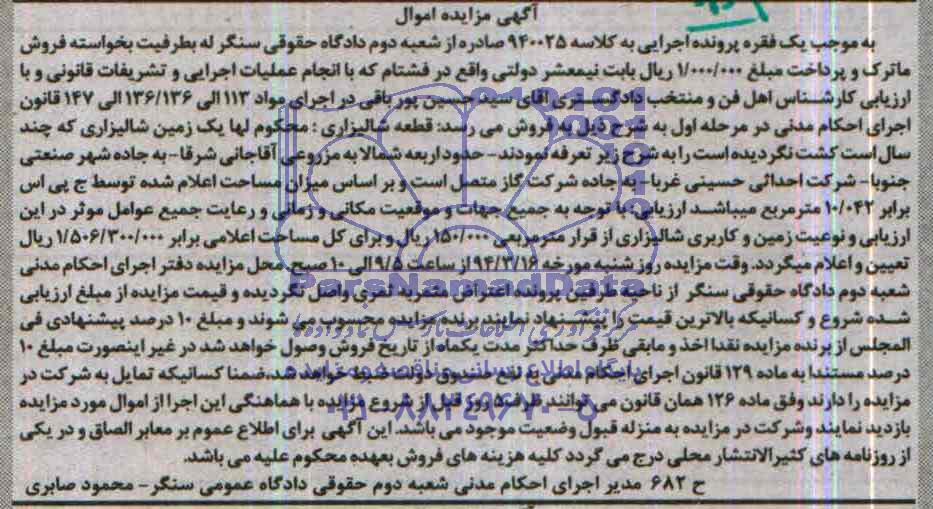 آگهی مزایده اموال
به موجب یک فقره پرونده اجرایی به کلاسه ۹۴۰۰۲۵ صادره از شعبه دوم دادگاه حقوقی سنگر له بطرفیت بخواسته فروش
ماترک و پرداخت مبلغ ۱/۰۰۰/۰۰۰ ریال بابت نیمعشر دولتی واقع در فشتام که با انجام عملیات اجرایی و تشریفات قانونی و با
ارزیابی کارشناس اهل فن و منتخب دادگستری آقای سید حسین پور باقی در اجرای مواد ۱۱۳ الی ۱۳۶/۱۳۶ الی ۱۴۷ قانون
اجرای احکام مدنی در مرحله اول به شرح ذیل به فروش می رسد: قطعه شالیزاری : محکوم لها یک زمین شالیزاری که چند
سال است کشت نگردیده است را به شرح زیر تعرفه نمودند- حدود اربعه شمالا به مزروعی آقاجانی شرقا- به جاده شهر صنعتی
جنوبا- شرکت احداثی حسینی غربا- به جاده شرکت گاز متصل است و بر اساس میزان مساحت اعلام شده توسط ج پی اس
برابر ۱۰/۰۴۲ مترمربع میباشد ارزیابی: با توجه به جمیع جهات و موقعیت مکانی و زمانی و رعایت جمیع عوامل موثر در این
ارزیابی و نوعیت زمین و کاربری شالیزاری از قرار مترمربعی ۱۵۰/۰۰۰ ریال و برای کل مساحت اعلامی برابر ۱/۵۰۶/۳۰۰/۰۰۰ ریال
تعیین و اعلام میگردد. وقت مزایده روز شنبه مورخه از ساعت ۹/۵ الی ۱۰ صبح محل مزایده دفتر اجرای احکام مدنی
شعبه دوم دادگاه حقوقی سنگر از ناحیه طرفین پرونده اعتراض واصل نگردیده و قیمت مزایده از مبلغ ارزیابی
شده شروع و کسانیکه بالاترین قیمت را پیشنهاد نمایند برنده مزایده محسوب می شوند و مبلغ ۱۰ درصد پیشنهادی فی
المجلس از برنده مزایده نقدا اخذ و مابقی ظرف حداکثر مدت یکماه از تاریخ فروش وصول خواهد شد در غیر اینصورت مبلغ ۱۰
درصد مستندا به ماده ۱۲۹ قانون اجرای احکام مدنی به نفع صندوق دولت ضبط خواهد شد ضمنا کسانیکه تمایل به شرکت در
مزایده را دارند وفق ماده ۱۲۶ همان قانون می توانند ظرف ۵ روز قبل از شروع مزایده با هماهنگی این اجرا از اموال مورد مزایده
بازدید نمایند وشرکت در مزایده به منزله قبول وضعیت موجود می باشد. این آگهی برای اطلاع عموم بر معابر الصاق و در یکی
از روزنامه های کثیرالانتشار محلی درج می گردد کلیه هزینه های فروش بعهده محکوم علیه می باشد.
ح ۶۸۲ مدیر اجرای احکام مدنی شعبه دوم حقوقی دادگاه عمومی سنگر- محمود صابری
ParsNamadData
مرکز فرآوری اطلاعات پارس نماد داده ها
پایگاه اطلاع رسانی مناقصه و مزایده
۰۲۱-۸۸۳۴۹۶۷۰-۵